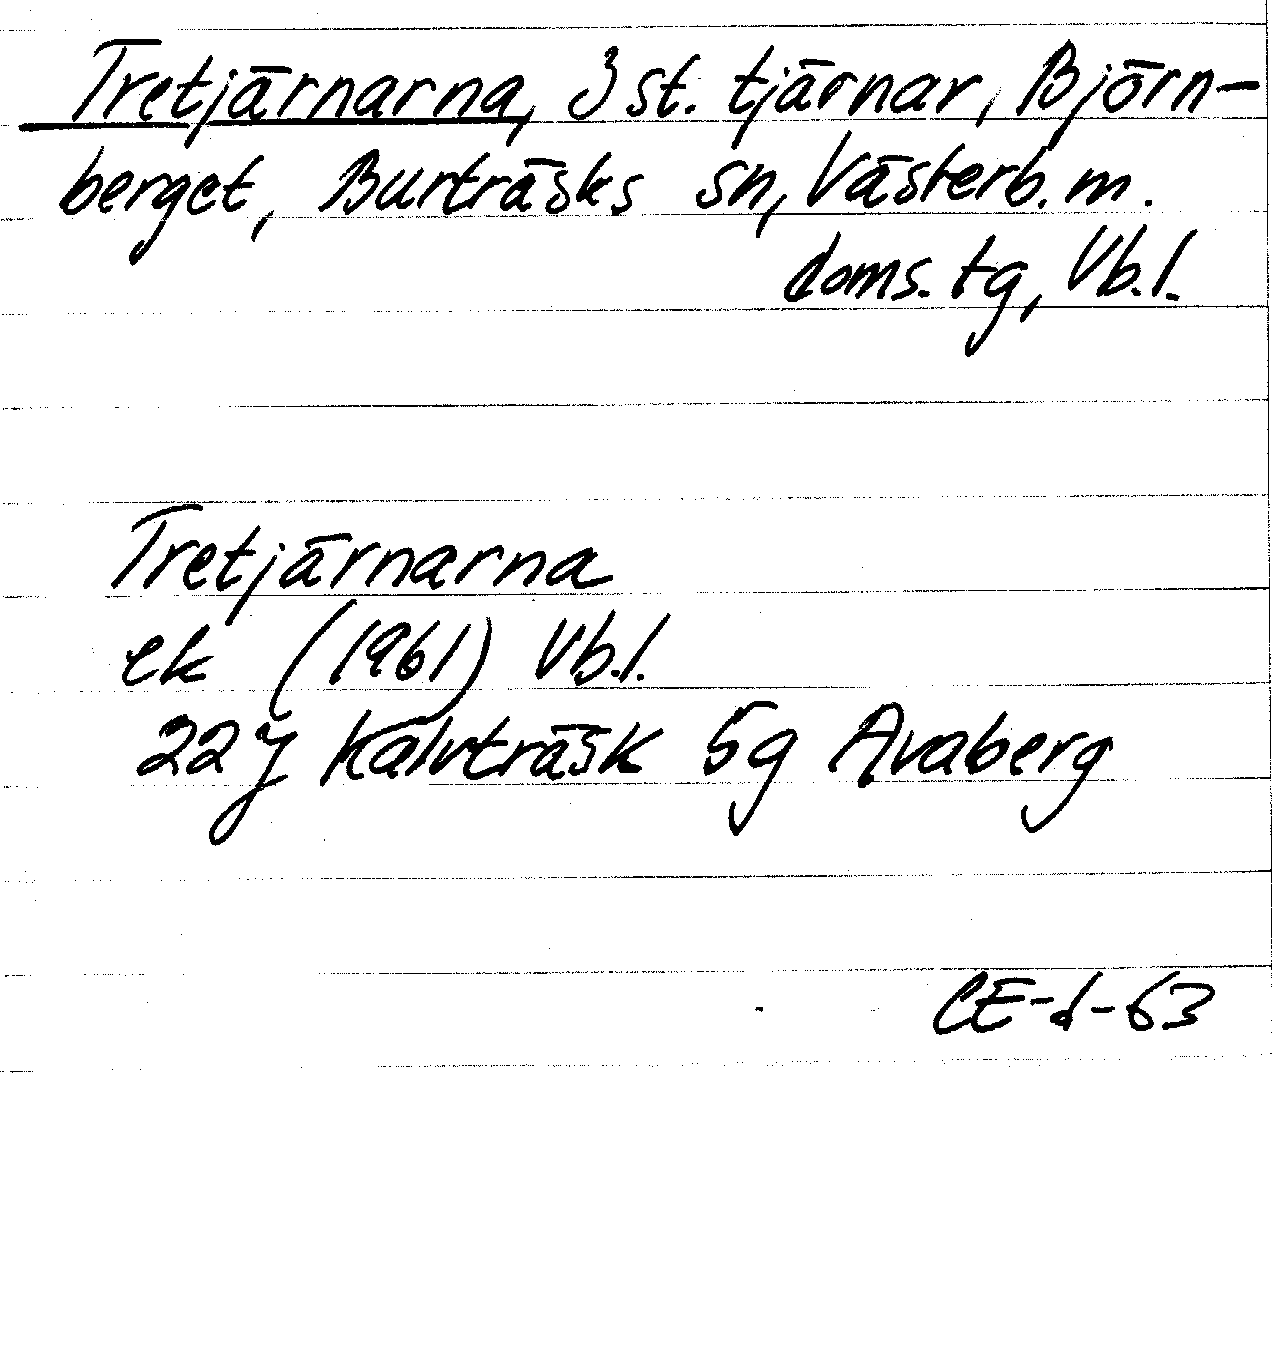 Tretjärnarna, 3 st. tjärnar, Björn-
berget, Burträsks sn, Västerb. m.
doms. tg, Vb. l.
Tretjärnarna
ek (1961) Vb. l.
22 J Kalvträsk 5g Avaberg
CE-d-63